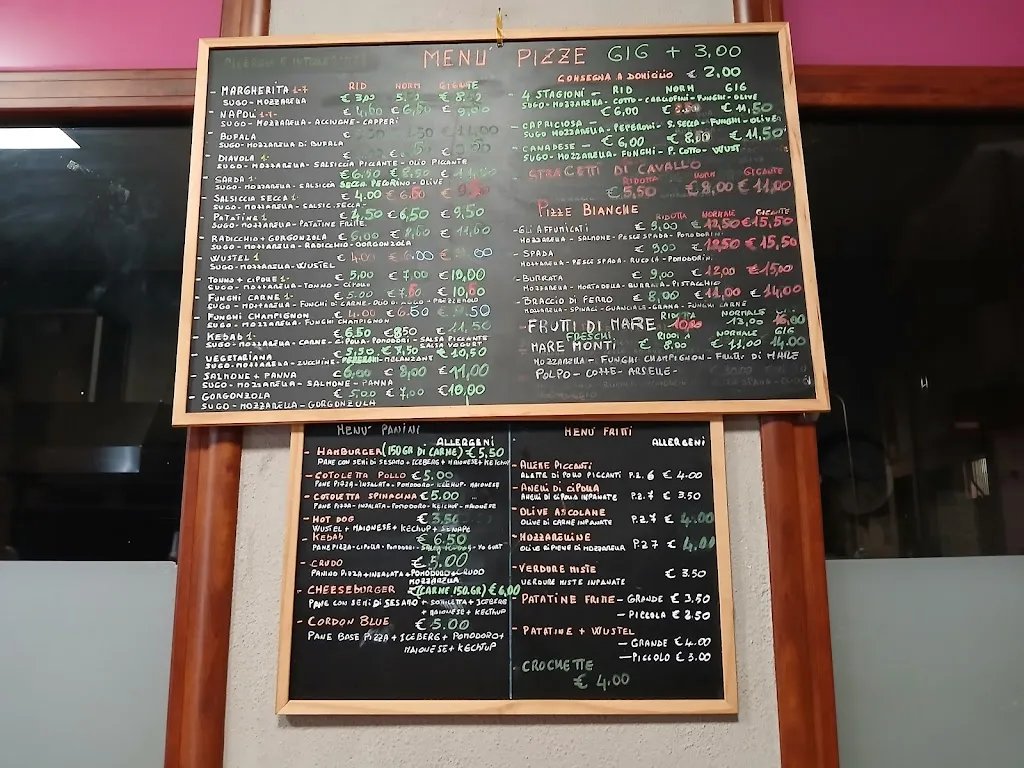 MENU' PIZZE GIG + 3,00
RID NORM GIGANTE
- MARGHERITA 1-7 € 3,00 € 8,00
SUGO - MOZZARELLA
NAPOLI 1-7- € 4,00 € 6,50 € 9,00
SUGO - MOZZARELLA - ACCIUGHE - CAPPERI
BUFALA
SUGO - MOZZARELLA DI BUFALA
DIAVOLA 1-
SUGO - MOZZARELLA - SALSICCIA PICCANTE - OLIO PICCANTE
SARDA 1- € 6,50 € 8,50 € 11,50
SUGO - MOZZARELLA - SALSICCIA SECCA PECORINO - OLIVE
SALSICCIA SECCA 1- € 4.00 € 6.50
SUGO - MOZZARELLA - SALSIC. SECCA -
PATATINE 1 € 4,50 € 6,50 € 9,50
SUGO - MOZZARELLA - PATATINE FRITTE
- RADICCHIO + GORGONZOLA
SUGO - MOZZARELLA - RADICCHIO - GORGONZOLA
- WUSTEL 1 € 4.00 € 6.00
SUGO - MOZZARELLA - WUSTEL
- TONNO + CIPOLLE 1- € 5,00 € 7,00 € 10,00
SUGO - MOZZARELLA - TONNO - CIPOLLE
FUNGHI CARNE 1- € 5.00 € 7.50
SUGO - MOZZARELLA - FUNGHI DI CARNE - OLIO D'AGLIO - PREZZEMOLO
FUNGHI CHAMPIGNON € 4.00 € 6.50 € 9.50
SUGO - MOZZARELLA - FUNGHI CHAMPIGNON
- KEBAB 1 € 6.50 € 8,50 € 11,50
SUGO - MOZZARELLA - CARNE - CIPOLLA - POMODORI - SALSA PICCANTE
SALSA YOGURT
VEGETARIANA € 5,50 € 7,50 € 10,50
SUGO - MOZZARELLA - ZUCCHINE - PEPERONI - MELANZANE
- SALMONE + PANNA € 6,00 € 8,00 € 11,00
SUGO - MOZZARELLA - SALMONE - PANNA
- GORGONZOLA € 5,00 € 7,00 € 10,00
SUGO - MOZZARELLA - GORGONZOLA
CONSEGNA A DOMICILIO € 2,00
- 4 STAGIONI - RID NORM GIG
SUGO - MOZZARELLA - COTTO - CARCIOFINI - FUNGHI - OLIVE
€ 6,00 € 8.50 € 11,50
- CAPRICIOSA -
SUGO MOZZARELLA - PEPERONI - S. SECCA - FUNGHI - OLIVE
- CANADESE - € 6,00 € 8,00 € 11,50
SUGO - MOZZARELLA - FUNGHI - P. COTTO - WUST
STRACETTI DI CAVALLO
RIDOTTA NORM GIGANTE
€ 5,50 € 8,00 € 11,00
PIZZE BIANCHE
RIDOTTA NORMALE GIGANTE
- GLI AFFUMICATI € 9,00 € 12,50 € 15,50
MOZZARELLA - SALMONE - PESCE SPADA - POMODORINI
- SPADA € 9,00 € 12,50 € 15,50
MOZZARELLA - PESCE SPADA - RUCOLA - POMODORINI
- BURRATA € 9,00 € 12,00 € 15,00
MOZZARELLA - MORTADELLA - BURRATA - PISTACCHIO
- BRACCIO DI FERRO € 8,00 € 11,00 € 14,00
MOZZARELLA - SPINACI - GUANCIALE - GRANA - FUNGHI CARNE
- FRUTTI DI MARE RIDOTTA NORMALE GIG
FRESCHI 13,00 16,00
MARE MONTI RIDOTT NORMALE GIG
€ 8,00 € 11,00 14.00
MOZZARELLA - FUNGHI CHAMPIGNON - FRUTTI DI MARE
POLPO - COZZE - ARSELLE -
MENU' PANINI
ALLERGENI
- HAMBURGER (150 GR DI CARNE) € 5,50
PANE CON SEMI DI SESAMO + ICEBERG + MAIONESE + KETCHUP
- COTOLETTA POLLO € 5.00
PANE PIZZA - INSALATA - POMODORO - KECHUP - MAIONESE
- COTOLETTA SPINACINA € 5.00
PANE PIZZA - INSALATA - POMODORO - KETCHUP - MAIONESE
- HOT DOG € 3,50
WUSTEL + MAIONESE + KECHUP + SENAPE
- KEBAB € 6.50
PANE PIZZA - CIPOLLA - POMODORI - SALSA YOGURT
- CRUDO € 5.00
PANINO PIZZA + INSALATA + POMODORO + CRUDO
MOZZARELLA
- CHEESEBURGER (CARNE 150.GR) € 6,00
PANE CON SEMI DI SESAMO + SOTTILETTA + ICEBERG
+ MAIONESE + KECTHUP
- CORDON BLUE € 5.00
PANE BASE PIZZA + ICEBERG + POMODORO +
MAIONESE + KECTHUP
MENU' FRITTI
ALLERGENI
- ALETTE PICCANTI
ALETTE DI POLLO PICCANTI P.2. 6 € 4.00
- ANELLI DI CIPOLLA
ANELLI DI CIPOLLA IMPANATE P.2.7 € 3.50
- OLIVE ASCOLANE
OLIVE DI CARNE IMPANATE P.2.7 € 4.00
- MOZZARELLINE
OLIVE RIPIENE DI MOZZARELLA P.2 7 € 4.00
- VERDURE MISTE
VERDURE MISTE IMPANATE € 3.50
- PATATINE FRITTE - GRANDE € 3.50
- PICCOLA € 2.50
- PATATINE + WUSTEL
- GRANDE € 4.00
- PICCOLO € 3.00
- CROCHETTE
€ 4.00